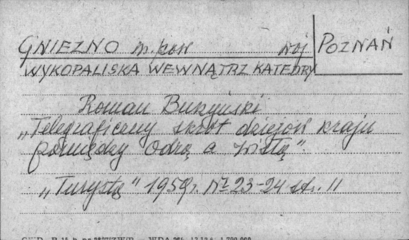 GNIEZNO m. pow woj POZNAŃ
WYKOPALISKA WEWNĄTRZ KATEDRY
Roman Burzyński
„Telegraficzny skrót dziejów kraju
pomiędzy Odrą a Wisłą".
„Turysta" 1959 r. Nr 23-24 str. 11